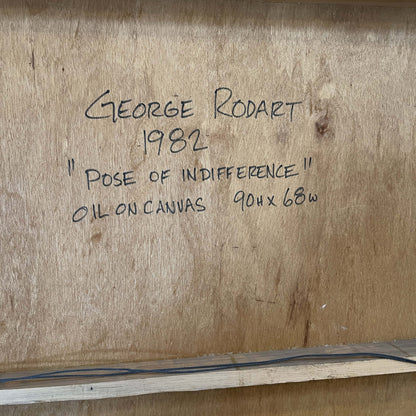 GEORGE RODART
1982
"POSE OF INDIFFERENCE"
OIL ON CANVAS 90H X 68W